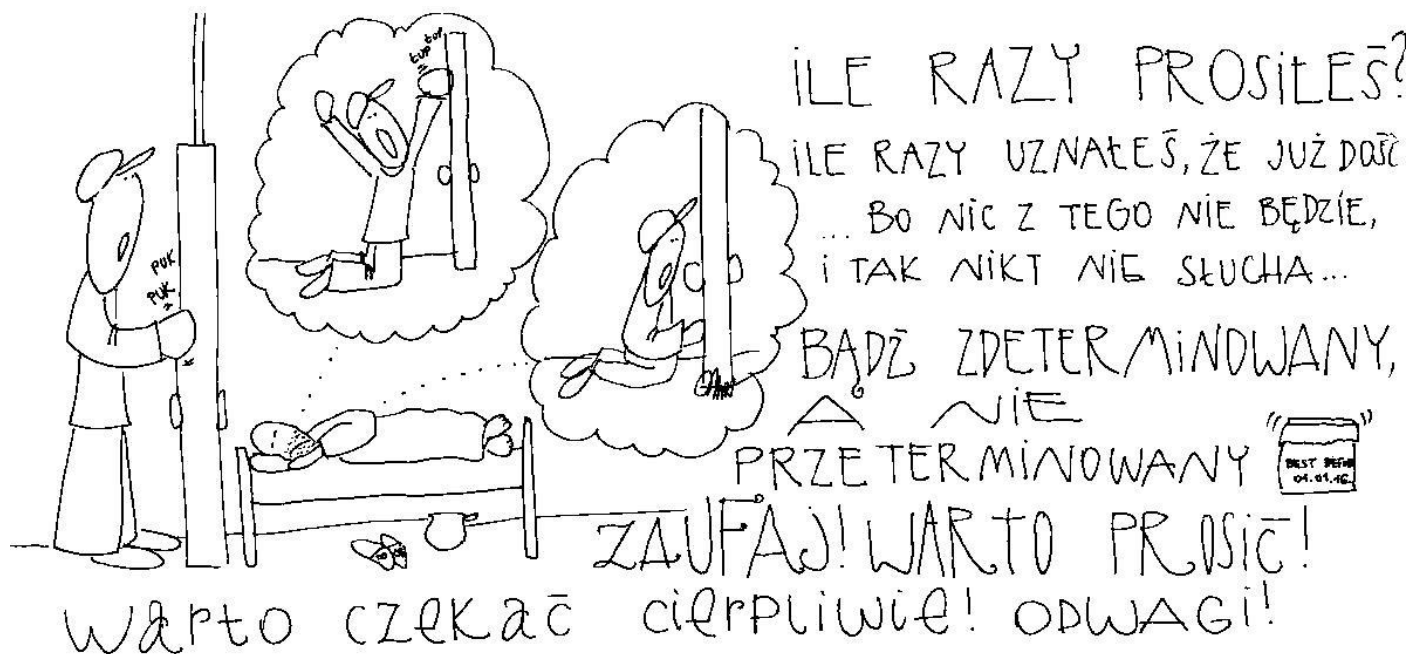 PUK
PUK
łup łup
iLE RAZY PROSiŁEŚ?
iLE RAZY UZNAŁEŚ, ŻE JUŻ DOŚĆ
... BO NiC Z TEGO NiE BĘDZiE,
i TAK NiKT NiE SŁUCHA...
BĄDŹ ZDETERMiNOWANY,
A NiE
PRZETERMiNOWANY
BEST BEFORE
01.01.16
ZAUFAJ! WARTO PROSiĆ!
warto czekać cierpliwie! ODWAGi!